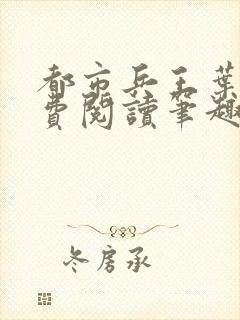 都市兵王葉
費閱讀筆趣
冬房承